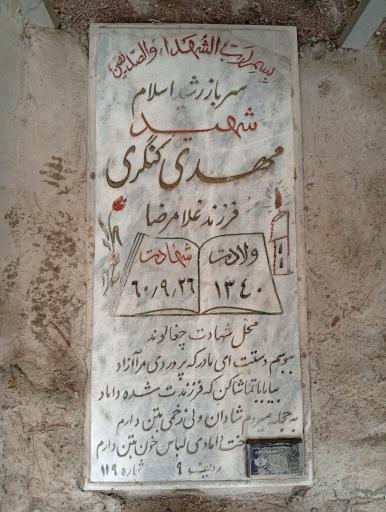 بسم رب الشهداء والصدیقین
سرباز رشید اسلام
شهید
مهدی کنگری
فرزند غلامرضا
ولادت شهادت
۱۳۴۰ ۶۰/۹/۲۶
محل شهادت چغالوند
ببوسم دستت ای مادر که پروردی مرا آزاد
بیا بابا تماشا کن که فرزندت شده داماد
به حجله میروم شادان ولی زخمی بتن دارم
رخت دامادی لباس خون بتن دارم
ردیف ۹ شماره ۱۱۹